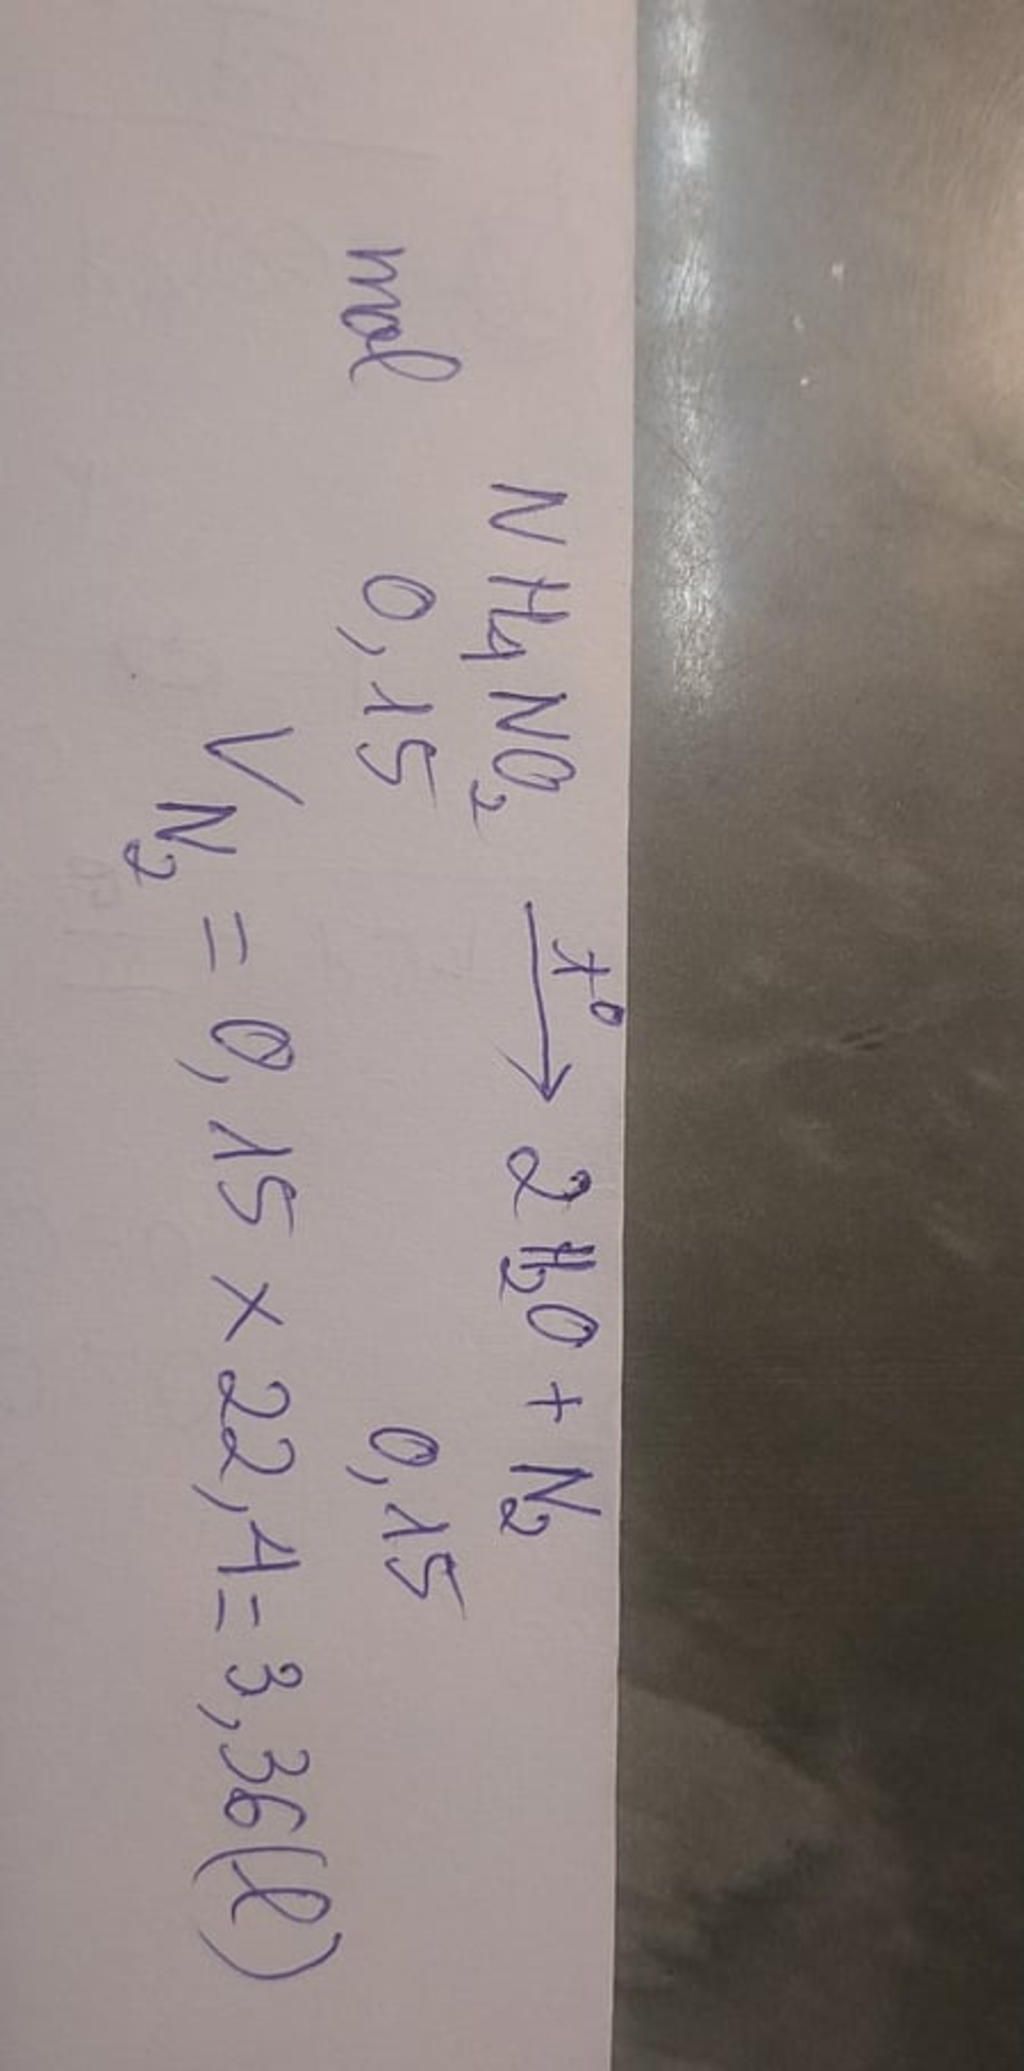 NH₄NO₂ →t⁰ 2H₂O + N₂
mol 0,15 0,15
V N₂ = 0,15 × 22,4 = 3,36 (l)